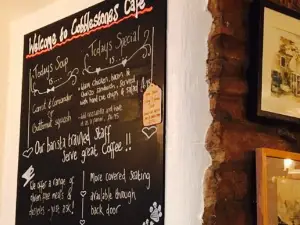 Welcome to Cobblestones Cafe
Today's Soup
is....
Carrot & Coriander
or
Butternut squash
Today's Special
Warm Chicken, bacon &
Chorizo sandwich. Served
with hand cut chips & salad
Our barista trained staff
Serve great Coffee!!
We offer a range of
gluten free meals &
desserts - just ask!
More covered seating
available through
back door